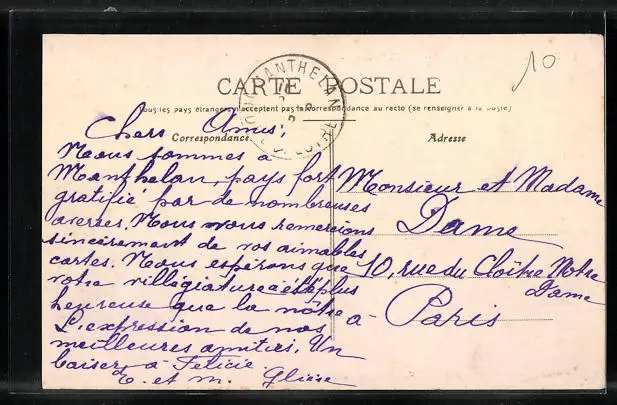 10
CARTE POSTALE
MANTHELAN
INDRE-ET-LOIRE
Tous les pays étrangers n'acceptent pas la correspondance au recto (se renseigner à la poste)
Correspondance
Chers Amis,
Nous sommes à
Manthelan, pays fort
gratifié par de nombreuses
averses. Nous vous remercions
sincèrement de vos aimables
cartes. Nous espérons que
votre villégiature a été plus
heureuse que la nôtre
L'expression de nos
meilleures amitiés. Un
baiser à Félicie.
E. et M.
Adresse
Monsieur et Madame
Dame
10, rue du Cloître Notre
Dame
à Paris